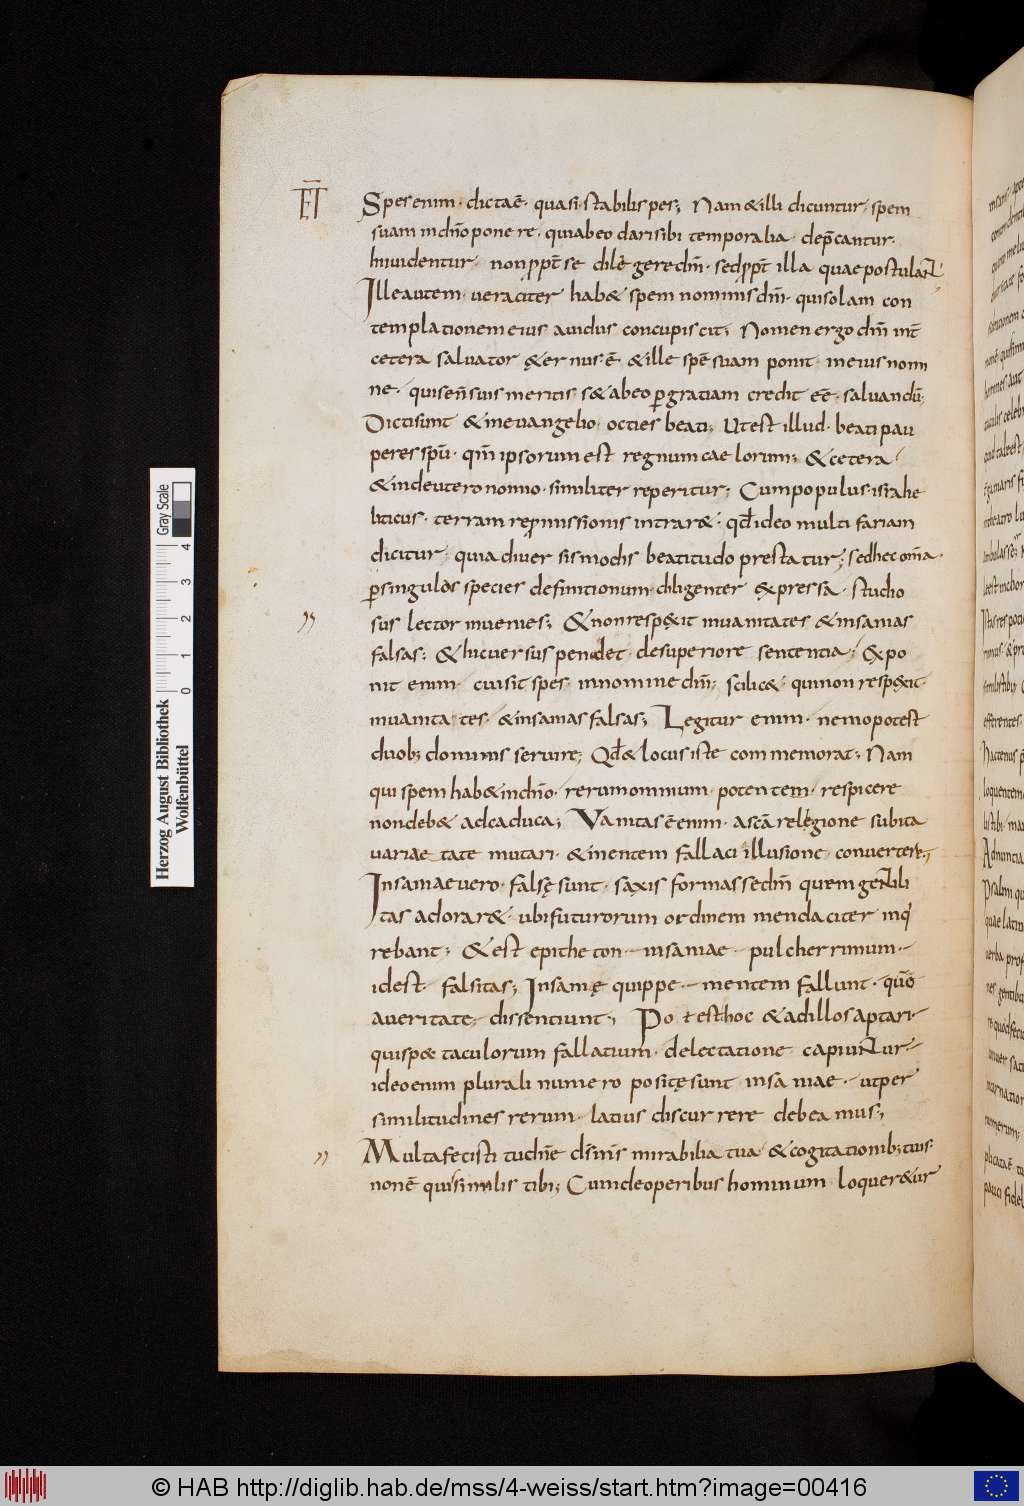 ET̄
Spes enim · dicta ē · quasi · stabilis pes; Nam & illi dicuntur · spem
suam in dn̄o ponere · qui ab eo dari sibi temporalia · dep̄cantur ·
Inuidentur · non ꝓpt̄ se diligere dm̄ · sed ꝓpt̄ illa quae postulant
Ille autem · ueraciter hab& spem nominis dn̄i · qui solam con
templationem eius auidus concupiscit; Nomen ergo dn̄i int̄
cetera saluator & ernus · ē · & ille spē suam ponit in eius nomi
ne · qui se n̄ suis meritis s& ab eo ꝑ gratiam credit eē · saluandū;
Dicti sunt & in euangelio octies beati; Ut est illud · beati pau
peres spū · qm̄ ipsorum est regnum caelorum; & cetera
& in deuteronomio · similiter reperitur; Cum populus israhe
liticus · terram repromissionis intrar& · qđ ideo multi fariam
dicitur · quia diuersis modis beatitudo prestatur; sed hec om̄a ·
ꝑ singulas species definitionum diligenter expressa · studio
sus lector inuenies; & non respexit in uanitates & insanias
falsas; & huc uersus pendet de superiore sententia; Expo
nit enim · cui sit spes · in nomine dn̄i; scilic& · qui non respexit ·
in uanitates · & insanias falsas; Legitur enim · nemo potest
duob; dominis seruire; Qđ & locus iste commemorat; Nam
qui spem hab& in dn̄o · rerum omnium · potentem · respicere
non deb& ad caduca; Vanitas ē enim · a scā religione subita
uarietate mutari · & mentem fallaci illusione conuertere;
Insaniae uero · falsę sunt · saxis formas sed m̄ quem gentili
tas adorar& · ubi futurorum ordinem mendaciter inq
rebant; & est epitheton · insaniae · pulcherrimum ·
id est · falsitas; Insanię quippe · mentem fallunt · qūo
a ueritate · dissentiunt; Pot est hoc & ad illos aptari ·
qui spectaculorum fallatium · delectatione capiuntur ·
ideo enim plurali numero positę sunt insaniae · ut per
similitudines rerum · latius discurrere debeamus;
Multa fecisti tu dn̄e ds̄ m̄s mirabilia tua & cogitationib; tuis ·
non ē qui similis tibi; Cum de operibus hominum loquer&ur
Herzog August Bibliothek
Wolfenbüttel
0 1 2 3 4
Gray Scale
© HAB http://diglib.hab.de/mss/4-weiss/start.htm?image=00416